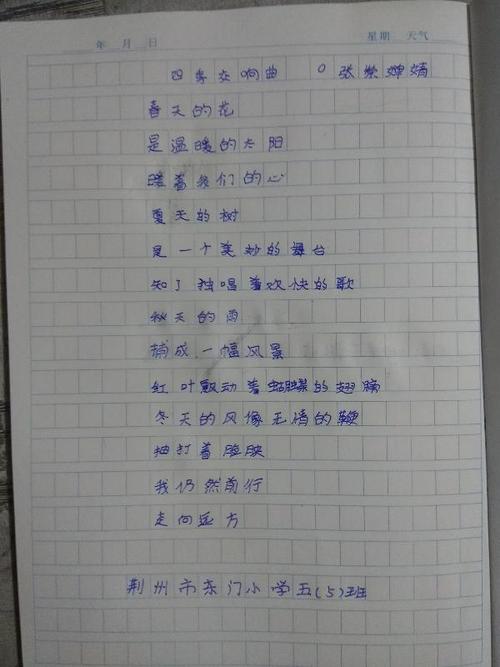 年 月 日 星期 天气
四季交响曲 张紫婵娟
春天的花
是温暖的太阳
暖着我们的心
夏天的树
是一个美妙的舞台
知了独唱着欢快的歌
秋天的雨
铺成一幅风景
红叶飘动着蝴蝶的翅膀
冬天的风像无情的鞭
抽打着脸颊
我仍然前行
走向远方
荆州市东门小学五(5)班